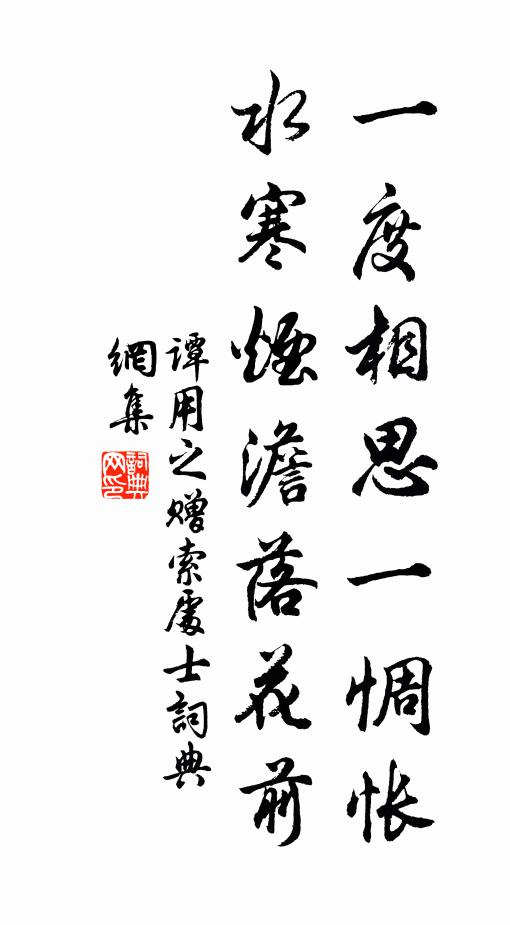 一度相思一惆怅
水寒煙澹落花前
谭用之赠索處士詞典
網集
詞典網印